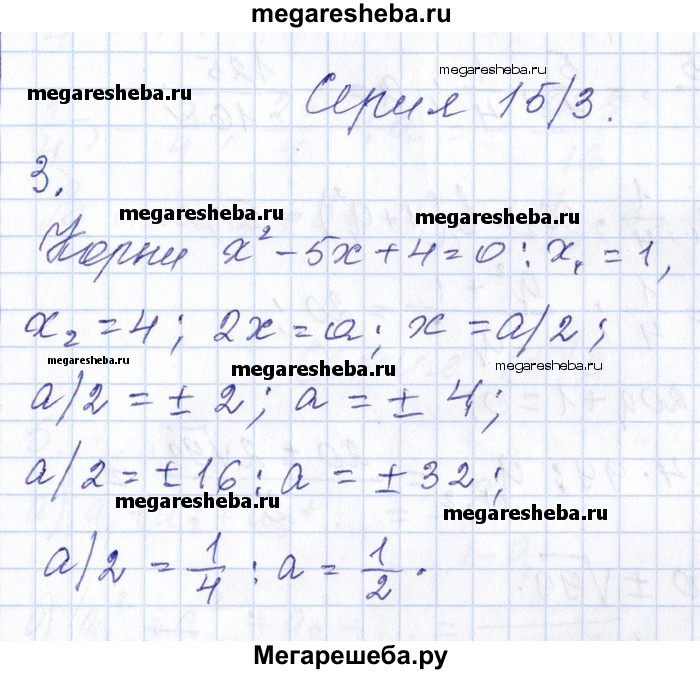 megaresheba.ru
megaresheba.ru
megaresheba.ru
Серия 15/3.
3.
megaresheba.ru
megaresheba.ru
Корни x² - 5x + 4 = 0 : x₁ = 1,
x₂ = 4; 2x = a; x = a/2;
megaresheba.ru
megaresheba.ru
megaresheba.ru
a/2 = ± 2; a = ± 4;
a/2 = ±16 : a = ± 32;
megaresheba.ru
megaresheba.ru
a/2 = 1/4 : a = 1/2.
Мегарешеба.ру